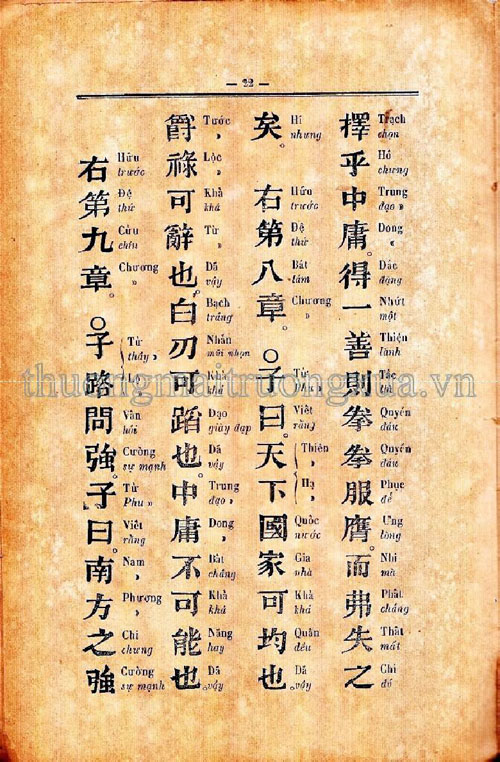 — 22 —
擇乎中庸。得一善則拳拳服膺。而弗失之
Trạch chọn
Hồ chưng
Trung đạo »
Dong »
Đắc đặng
Nhứt một
Thiện lành
Tắc thì
Quyền dấu
Quyền dấu
Phục để
Ưng lòng
Nhi mà
Phất chẳng
Thất mất
Chi đó
矣。右第八章。○子曰。天下國家可均也
Hĩ nhưng
Hữu trước
Đệ thứ
Bát tám
Chương »
Tử Phu »
Viết rằng
Thiên »
Hạ »
Quốc nước
Gia nhà
Khả khá
Quân đều
Dã vậy
爵祿可辭也。白刃可蹈也。中庸不可能也。
Tước »
Lộc »
Khả khá
Từ »
Dã vậy
Bạch trắng
Nhẫn mũi nhọn
Khả khá
Đạo giày đạp
Dã vậy
Trung đạo »
Dong »
Bất chẳng
Khả khá
Năng hay
Dã vậy
右第九章。○子路問強。子曰南方之強
Hữu trước
Đệ thứ
Cửu chín
Chương »
Tử thầy »
Lộ »
Vấn hỏi
Cường sự mạnh
Tử Phu »
Viết rằng
Nam »
Phương »
Chi chưng
Cường sự mạnh
thuongmaitruongxua.vn